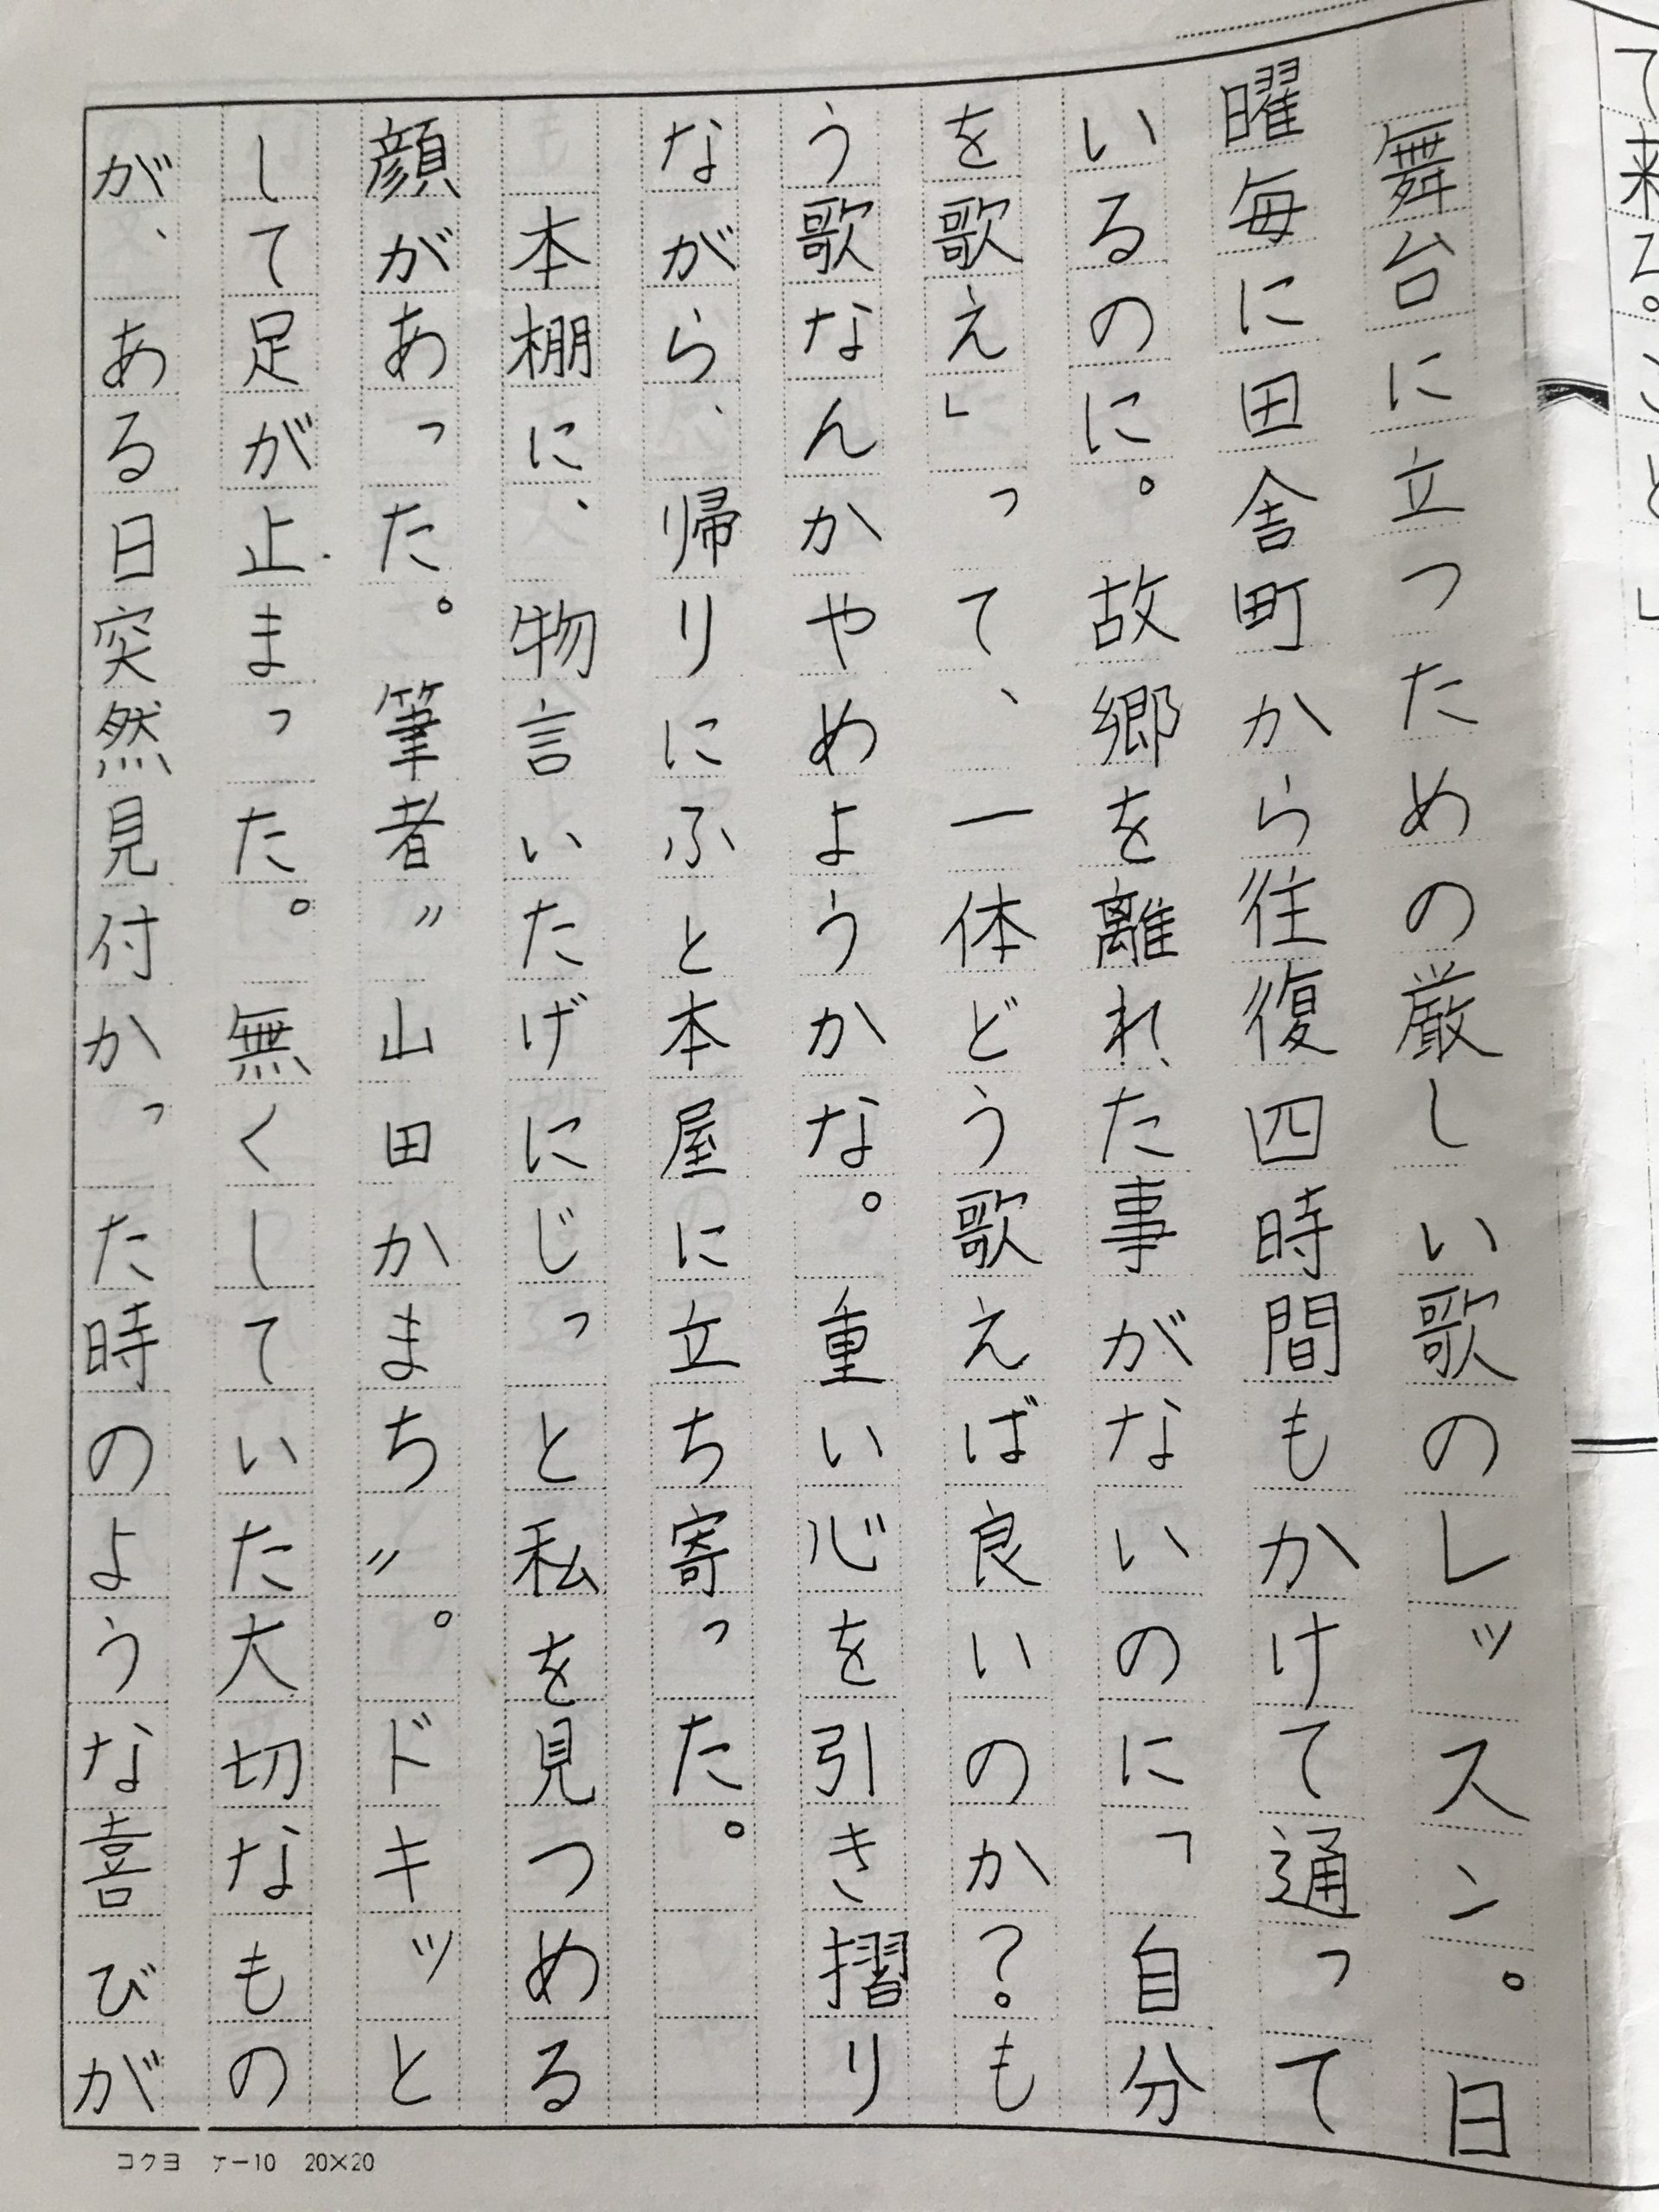 て来る。こと」
舞台に立つための厳しい歌のレッスン。日
曜毎に田舎町から往復四時間もかけて通って
いるのに。故郷を離れた事がないのに「自分
を歌え」って、一体どう歌えば良いのか?も
う歌なんかやめようかな。重い心を引き摺り
ながら、帰りにふと本屋に立ち寄った。
本棚に、物言いたげにじっと私を見つめる
顔があった。筆者〃山田かまち〃。ドキッと
して足が止まった。無くしていた大切なもの
が、ある日突然見付かった時のような喜びが
コクヨ ケー10 20×20